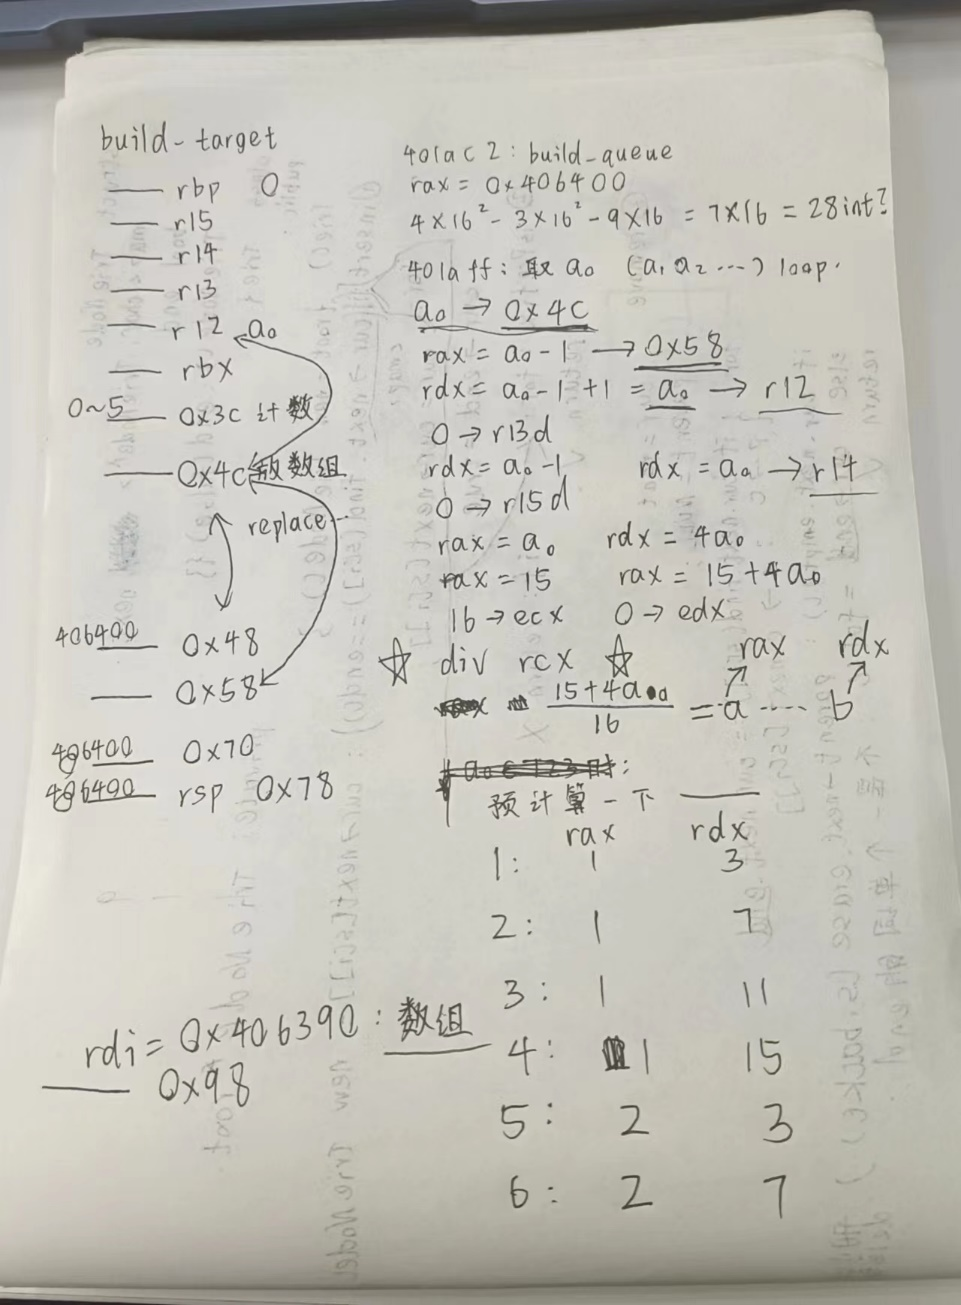 build-target
rbp 0
r15
r14
r13
r12 a₀
rbx
0~5 0x3c 计数
0x4c 数组
replace
406400 0x48
0x58
406400 0x70
406400 rsp 0x78
rdi = 0x406390 : 数组
0x98
401ac2 : build_queue
rax = 0x406400
4×16² - 3×16² - 9×16 = 7×16 = 28int?
401aff : 取 a₀ (a₁ a₂ …) loop.
a₀ → 0x4c
rax = a₀ - 1 → 0x58
rdx = a₀ - 1 + 1 = a₀ → r12
0 → r13d
rdx = a₀ - 1 rdx = a₀ → r14
0 → r15d
rax = a₀ rdx = 4a₀
rax = 15 rax = 15 + 4a₀
16 → ecx 0 → edx
☆ div rcx ☆ rax rdx
15+4a₀ / 16 = a ····· b
预计算一下
rax rdx
1: 1 3
2: 1 7
3: 1 11
4: 1 15
5: 2 3
6: 2 7